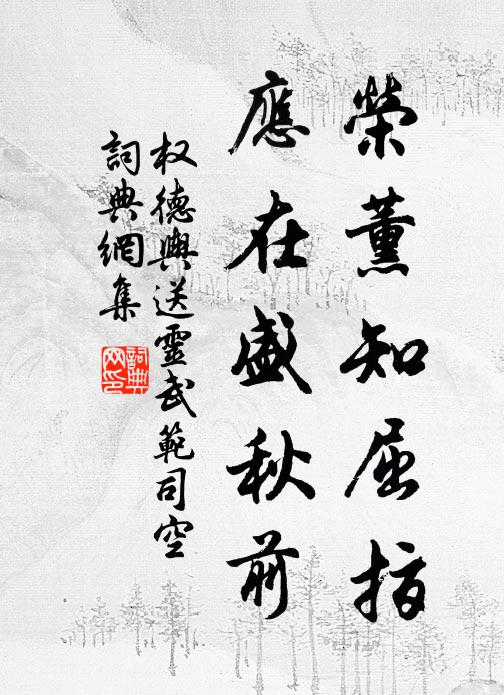 榮薰知屈指
應在盛秋前
权德輿送靈武範司空
詞典網集
詞典網印